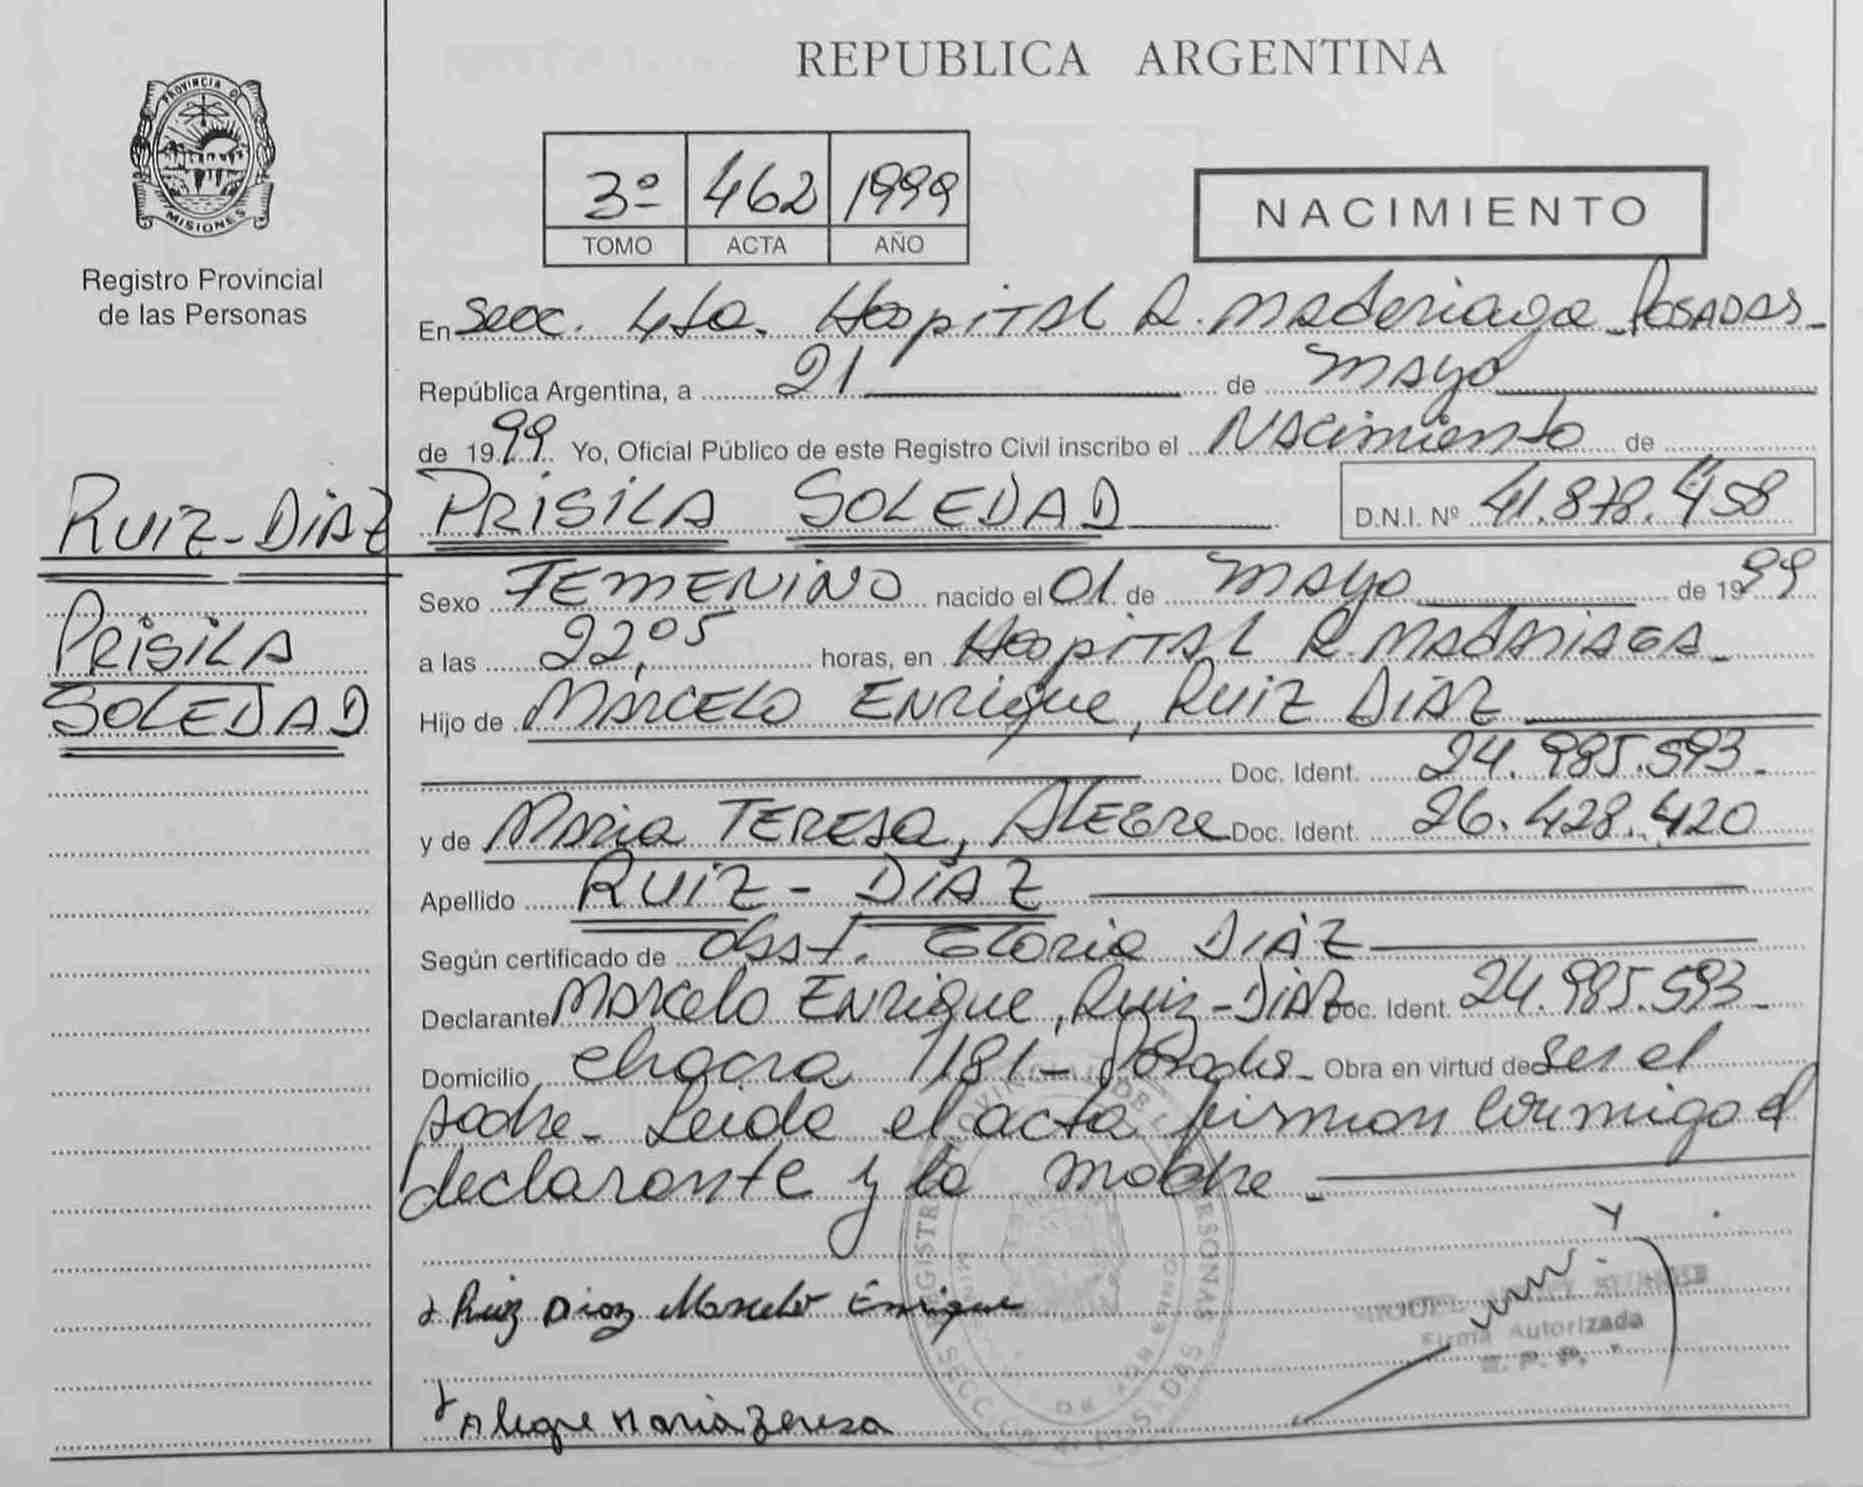 REPUBLICA ARGENTINA
PROVINCIA DE
MISIONES
Registro Provincial
de las Personas
3º 462 1999
TOMO ACTA AÑO
NACIMIENTO
En Secc. 4ta. Hospital R. Maderiaga - POSADAS -
República Argentina, a 21 de mayo
de 1999 Yo, Oficial Público de este Registro Civil inscribo el Nacimiento de
RUIZ-DIAZ PRISILA SOLEDAD D.N.I. Nº 41.878.458
PRISILA
SOLEDAD
Sexo FEMENINO nacido el 01 de mayo de 1999
a las 22,05 horas, en Hospital R. MADARIAGA -
Hijo de MARCELO ENRique, RUIZ DIAZ
Doc. Ident. 24.985.593 -
y de Maria TERESA, ALEGRE Doc. Ident. 26.428.420
Apellido RUIZ - DIAZ
Según certificado de Obst. Gloria DIAZ
Declarante Marcelo ENRique, Ruiz - DIAZ Doc. Ident. 24.985.593 -
Domicilio chacra 181 - Posadas - Obra en virtud de Ser el
padre - Leida el acta firman conmigo el
declarante y la madre -
Ruiz Diaz Marcelo Enrique
Firma Autorizada
Alegre Maria Teresa